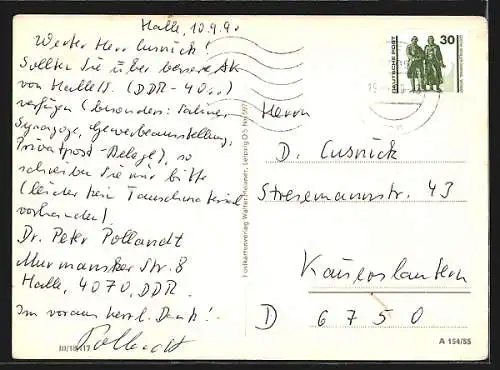 Halle, 10.9.90
Werter Herr Cusnick!
Sollten Sie über bessere AK
von Halle/S. (DDR-40..)
verfügen (besonders: Saline,
Synagoge, Gewerbeausstellung,
Privatpost-Belege), so
schreiben Sie mir bitte
(leider kein Tauschmaterial
vorhanden!
Dr. Peter Pollandt
Murmansker Str. 8
Halle, 4070, DDR.
Im voraus herzl. Dank!
Pollandt
III/18/117
Postkartenverlag Walter Neuner, Leipzig O 5
DEUTSCHE POST
30
Herrn
D. Cusnick
Stresemannstr. 43
Kaiserslautern
D 6750
A 154/55